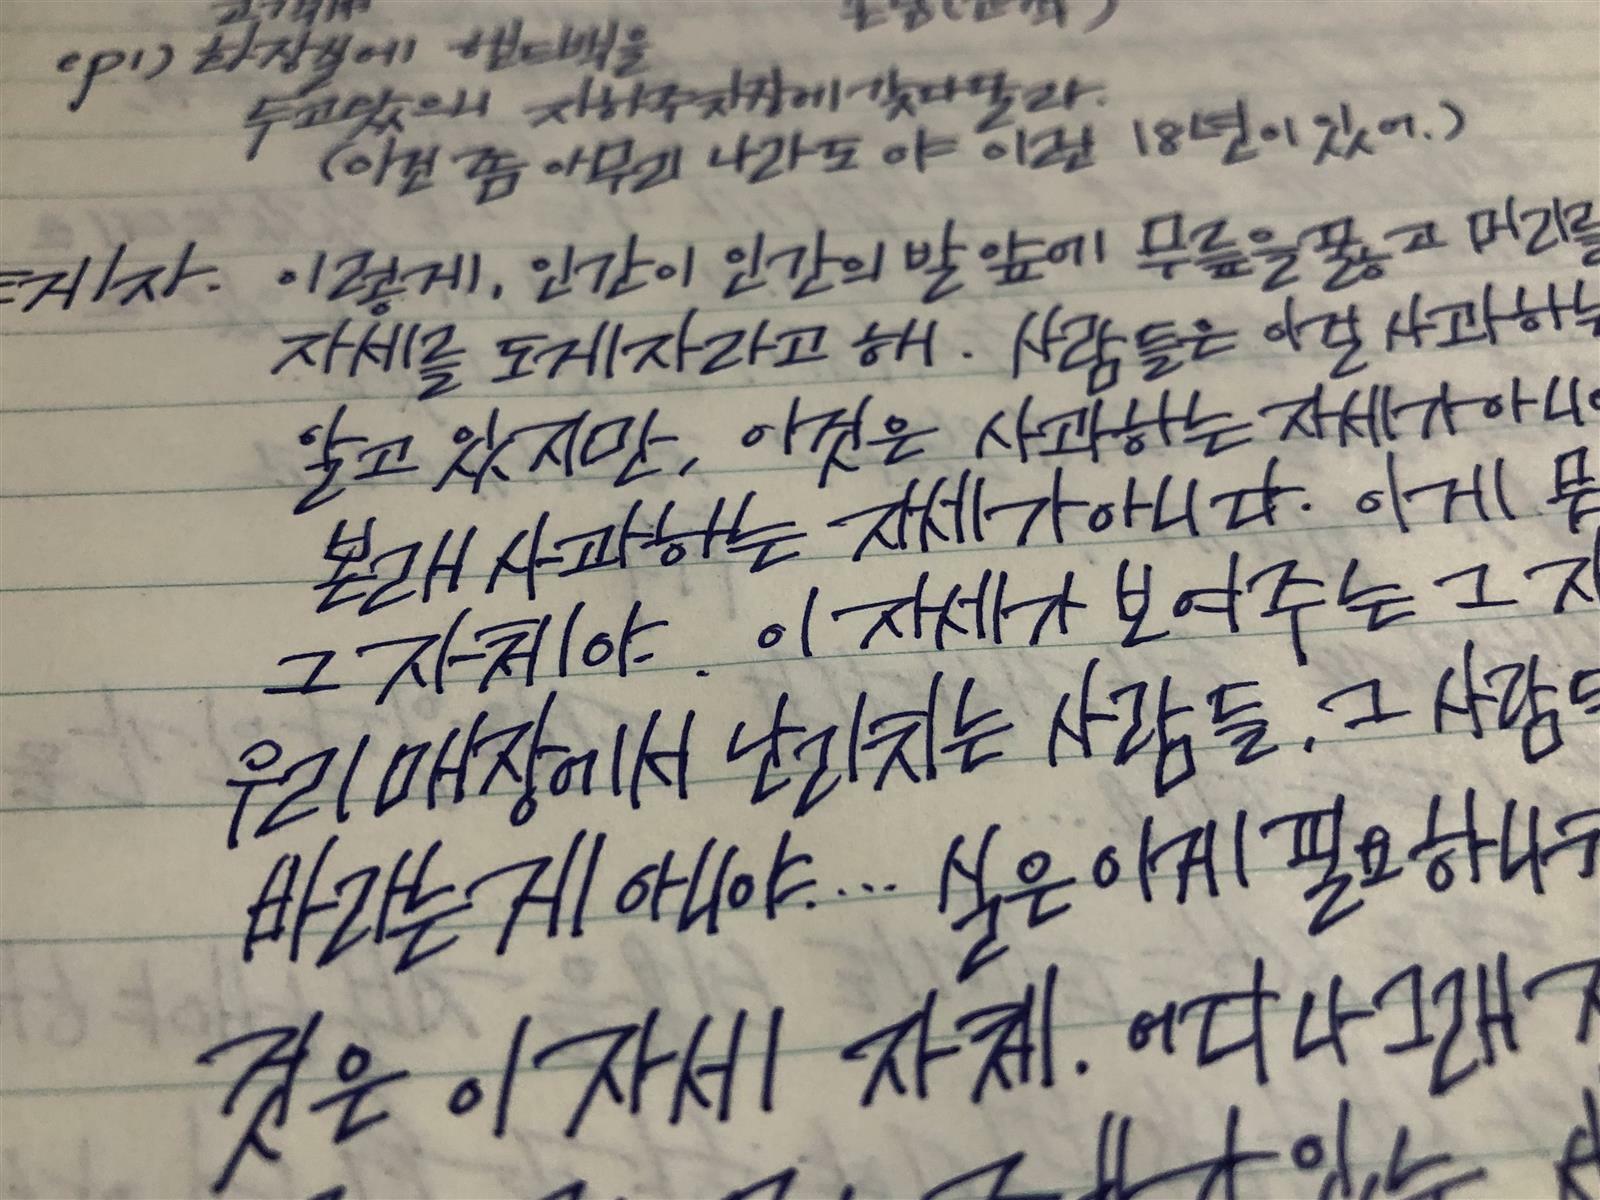 ep1) 화장실에 핸드백을
두고왔으니 지하주차장에 갖다달라.
(이런 쯤 아무리 나라도 야 이런 18년이 있어.)
게자. 이렇게, 인간이 인간의 발 앞에 무릎을 꿇고 머리를
자세를 도게자라고 해. 사람들은 이걸 사과하는
알고 있지만, 이것은 사과하는 자세가 아니
본래 사과하는 자세가 아니다. 이게 몸
그 자체야. 이 자세가 보여주는 그
우리 매장에서 난리치는 사람들, 그 사람
바라는 게 아니야.... 실은 이게 필요하
것은 이 자세 자체. 어디나 그래